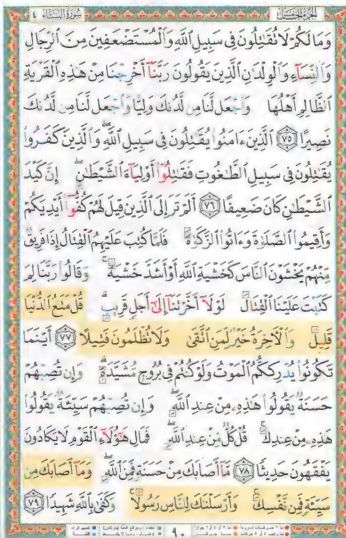 الجزء الخامس
سورة النساء ٤
وَمَا لَكُمْ لَا تُقَٰتِلُونَ فِى سَبِيلِ ٱللَّهِ وَٱلْمُسْتَضْعَفِينَ مِنَ ٱلرِّجَالِ
وَٱلنِّسَآءِ وَٱلْوِلْدَٰنِ ٱلَّذِينَ يَقُولُونَ رَبَّنَآ أَخْرِجْنَا مِنْ هَٰذِهِ ٱلْقَرْيَةِ
ٱلظَّالِمِ أَهْلُهَا وَٱجْعَل لَّنَا مِن لَّدُنكَ وَلِيًّا وَٱجْعَل لَّنَا مِن لَّدُنكَ
نَصِيرًا ٧٥ ٱلَّذِينَ ءَامَنُوا۟ يُقَٰتِلُونَ فِى سَبِيلِ ٱللَّهِ وَٱلَّذِينَ كَفَرُوا۟
يُقَٰتِلُونَ فِى سَبِيلِ ٱلطَّٰغُوتِ فَقَٰتِلُوٓا۟ أَوْلِيَآءَ ٱلشَّيْطَٰنِ إِنَّ كَيْدَ
ٱلشَّيْطَٰنِ كَانَ ضَعِيفًا ٧٦ أَلَمْ تَرَ إِلَى ٱلَّذِينَ قِيلَ لَهُمْ كُفُّوٓا۟ أَيْدِيَكُمْ
وَأَقِيمُوا۟ ٱلصَّلَوٰةَ وَءَاتُوا۟ ٱلزَّكَوٰةَ فَلَمَّا كُتِبَ عَلَيْهِمُ ٱلْقِتَالُ إِذَا فَرِيقٌ
مِّنْهُمْ يَخْشَوْنَ ٱلنَّاسَ كَخَشْيَةِ ٱللَّهِ أَوْ أَشَدَّ خَشْيَةً وَقَالُوا۟ رَبَّنَا لِمَ
كَتَبْتَ عَلَيْنَا ٱلْقِتَالَ لَوْلَآ أَخَّرْتَنَآ إِلَىٰٓ أَجَلٍ قَرِيبٍ قُلْ مَتَٰعُ ٱلدُّنْيَا
قَلِيلٌ وَٱلْءَاخِرَةُ خَيْرٌ لِّمَنِ ٱتَّقَىٰ وَلَا تُظْلَمُونَ فَتِيلًا ٧٧ أَيْنَمَا
تَكُونُوا۟ يُدْرِككُّمُ ٱلْمَوْتُ وَلَوْ كُنتُمْ فِى بُرُوجٍ مُّشَيَّدَةٍ وَإِن تُصِبْهُمْ
حَسَنَةٌ يَقُولُوا۟ هَٰذِهِۦ مِنْ عِندِ ٱللَّهِ وَإِن تُصِبْهُمْ سَيِّئَةٌ يَقُولُوا۟
هَٰذِهِۦ مِنْ عِندِكَ قُلْ كُلٌّ مِّنْ عِندِ ٱللَّهِ فَمَالِ هَٰٓؤُلَآءِ ٱلْقَوْمِ لَا يَكَادُونَ
يَفْقَهُونَ حَدِيثًا ٧٨ مَّآ أَصَابَكَ مِنْ حَسَنَةٍ فَمِنَ ٱللَّهِ وَمَآ أَصَابَكَ مِن
سَيِّئَةٍ فَمِن نَّفْسِكَ وَأَرْسَلْنَٰكَ لِلنَّاسِ رَسُولًا وَكَفَىٰ بِٱللَّهِ شَهِيدًا ٧٩
٩٠